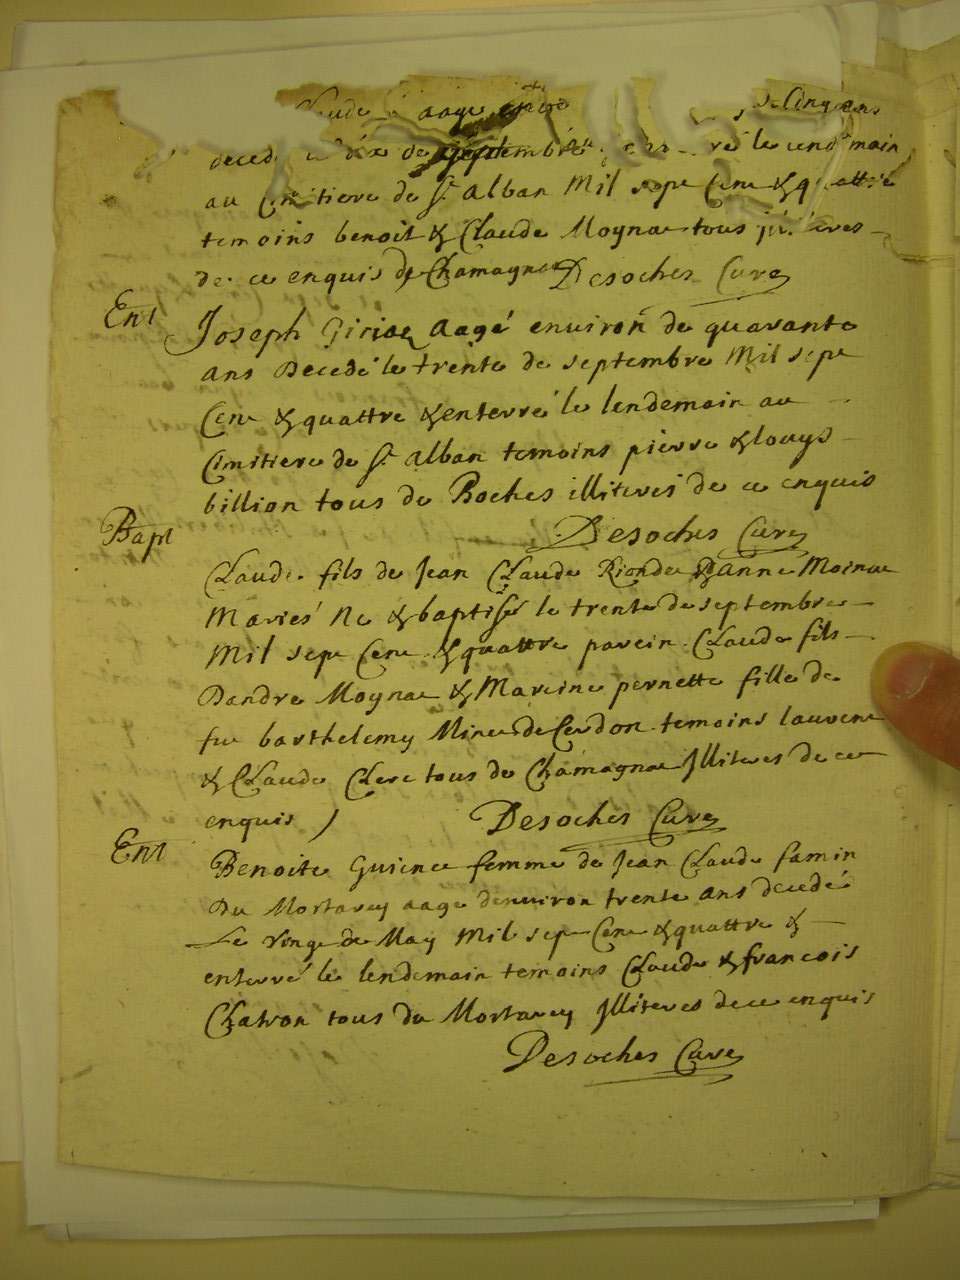 Claude aage
deced de septembre le lendemain
au Cimitiere de St. alban Mil sept Cent & quattre
temoins benoit & Claude Moynat tous
de ce enquis de Chamagnat Desoches Curé
Ent Joseph aagé environ de quarante
ans Decedé le trente de septembre Mil sept
Cent & quattre & enterré le lendemain au
Cimitiere de St. alban temoins pierre & louys
billion tous de Roches illiterés de ce enquis
Desoches Curé
Bapt
Claude fils de Jean Claude Rionde & anne Moinat
Mariés Ne & baptisé le trente de septembre
Mil sept Cent & quattre parein Claude fils
Dandre Moynat & Mareine pernette fille de
fu barthelemy de Cerdon temoins laurent
& Claude Clerc tous de Chamagnat Jlliteres de ce
enquis) Desoches Curé
Ent
Benoite femme de Jean Claude famin
Du Mortarey aage denviron trente ans decedé
Le vingt de May Mil sept Cent & quattre &
enterré le lendemain temoins Claude & francois
Chatron tous du Mortarey Jlliteres de ce enquis
Desoches Curé